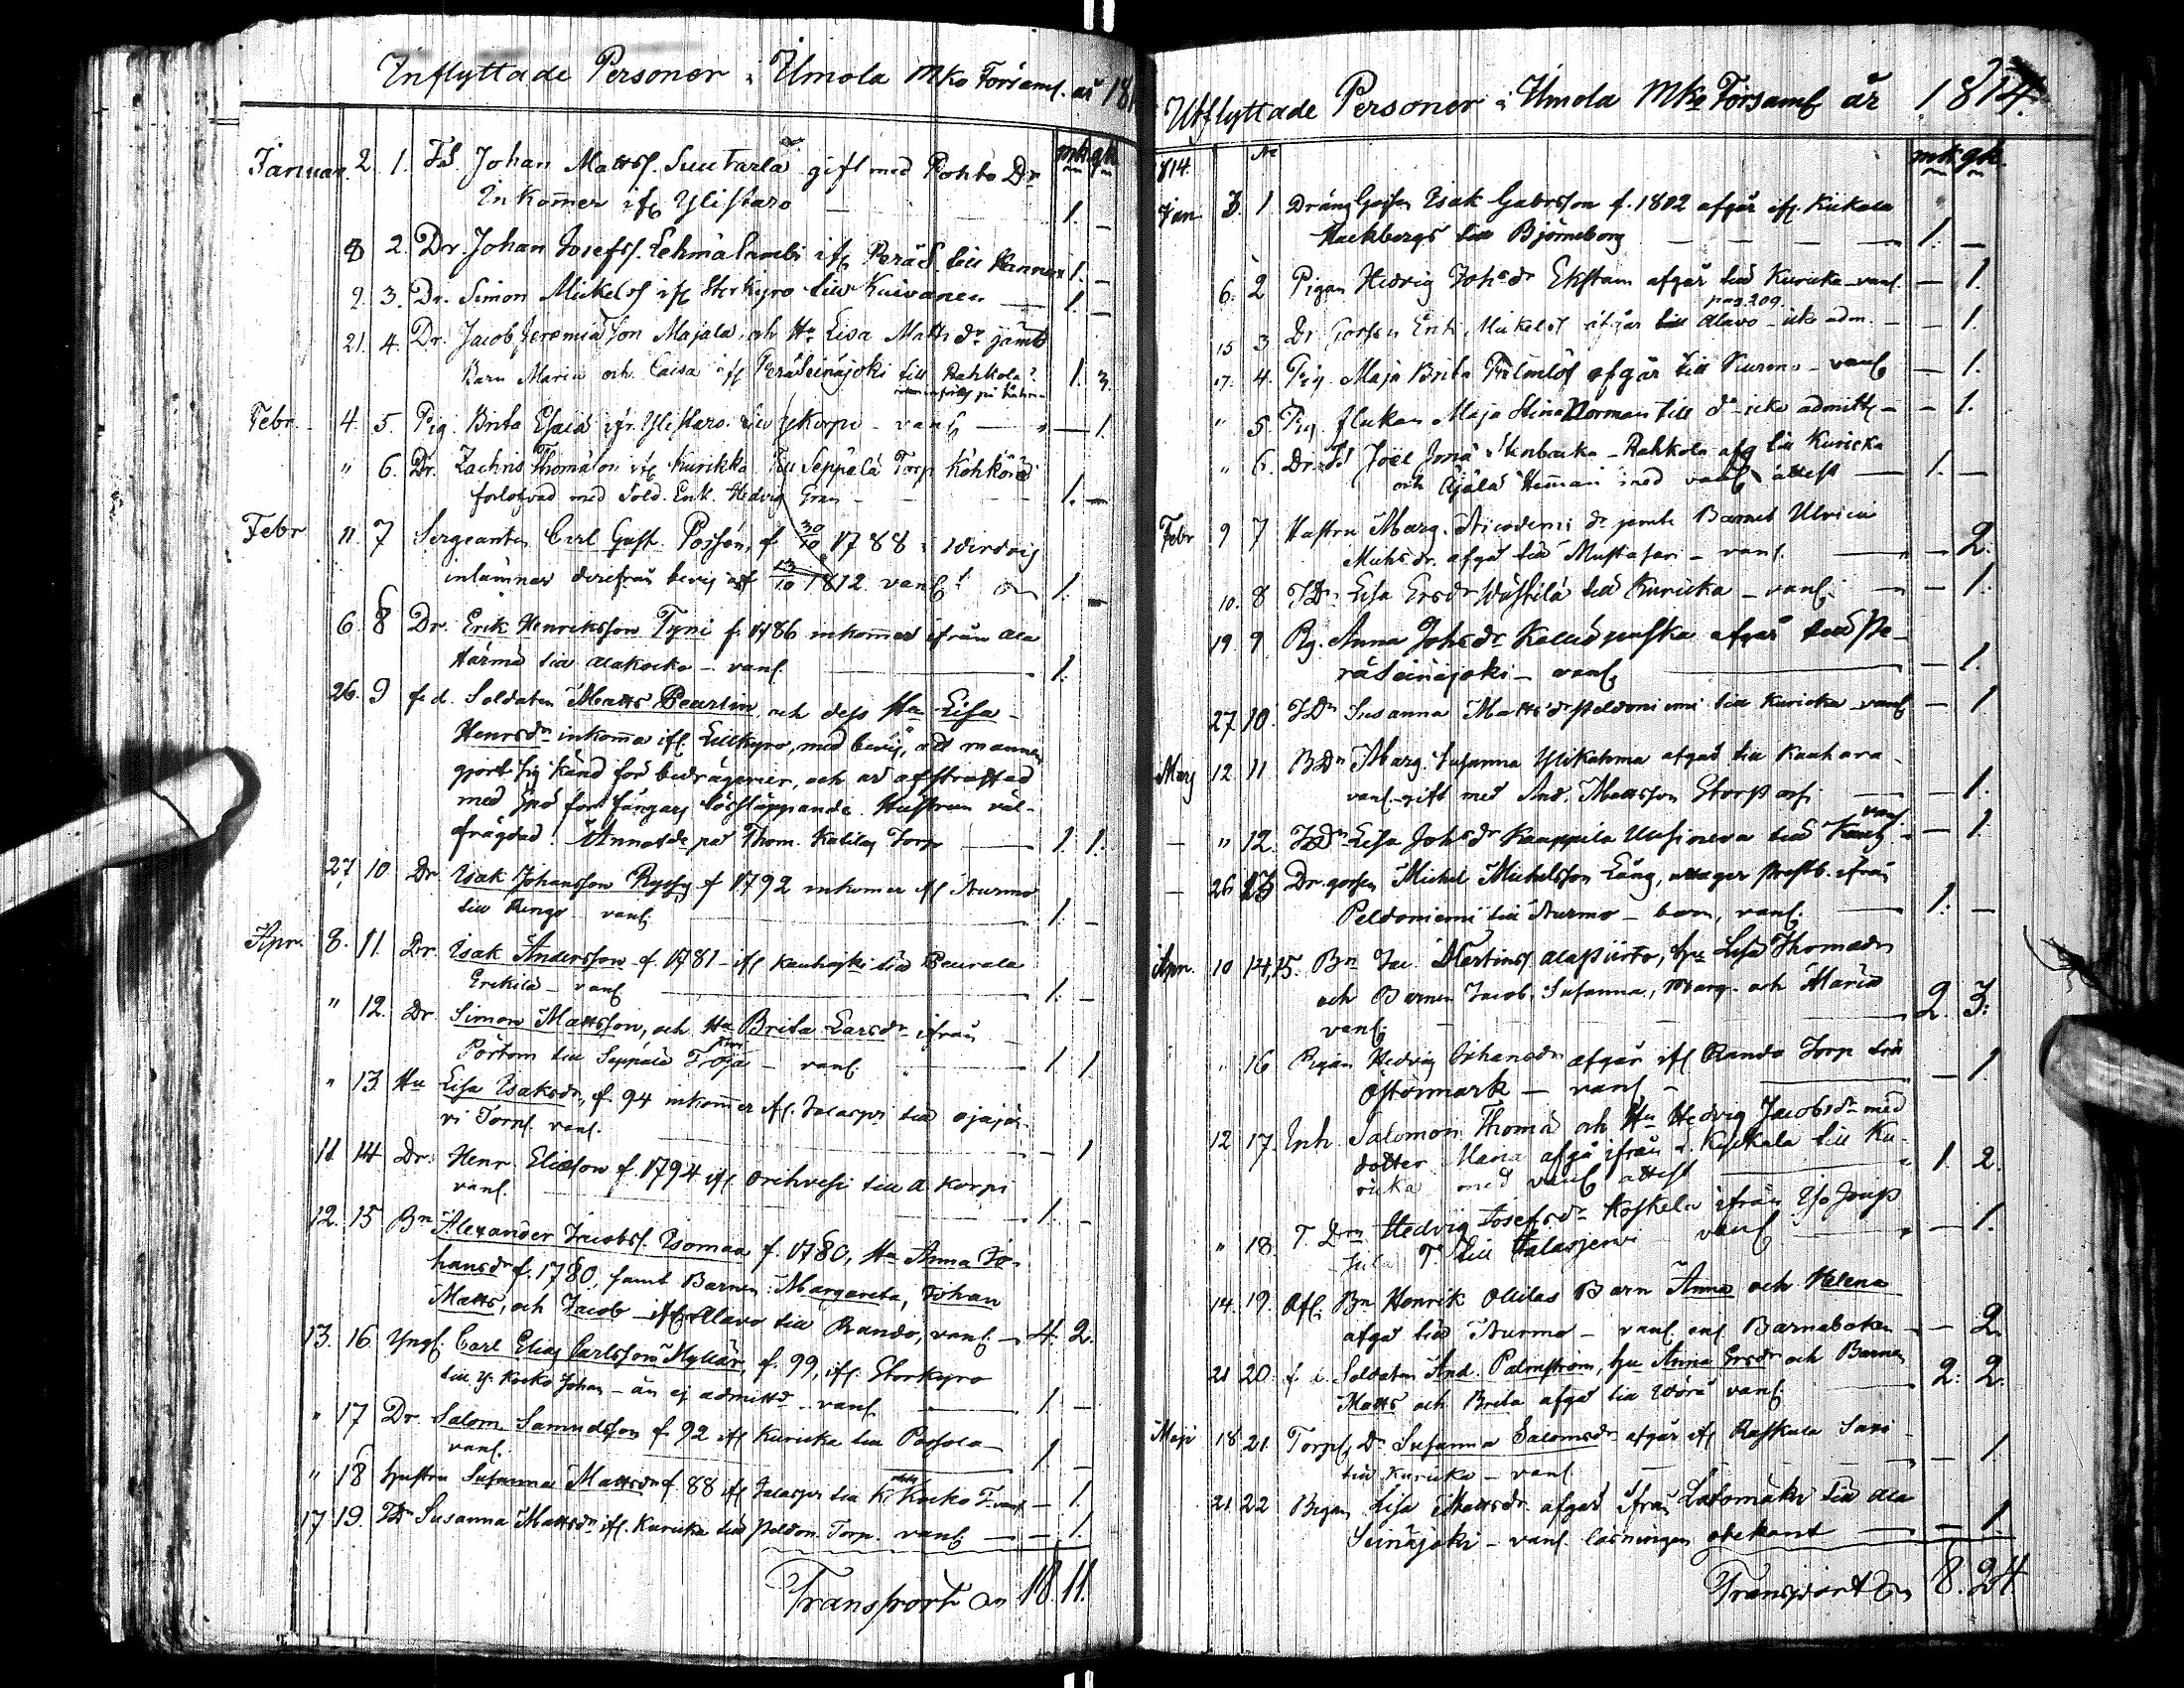 Inflyttade Personer i Ilmola Mko Församl. år 181
mk. qk.
Januar. 2. 1. Fd. Johan Mattss. Luutarla gift med Pohto Dr
Inkommer ifr Ylistaro 1. –
8 2. Dr. Johan Josefss. Lehmälambi ifr Peräs. till 1. –
9. 3. Dr. Simon Mickelss ifr Storkyro till Kuivanen 1. –
21. 4. Dr. Jacob Jeremiæ son Majala och Hu Lisa Matts dr jämte
Barn Maria och Caisa ifr Peräseinäjoki till Rahkola 1. 3.
Febr. 4. 5. Pig. Brita Esaid ifr. Ylistaro till Ykorpi – vanl. — 1.
" 6. Dr. Zachris Thomason ifr Kurikka till Seppälä Torp
förlofvad med Sold. Enk. Hedvig Gran – 1. —
Febr 11. 7 Sergeanten Carl Gust. Possén, f 30/10 1788 i
inlämnar derifrån bevis af 13/10 1812 vanl. 1. –
6. 8 Dr. Erik Henriksson Tyni f. 1786 inkommer ifrån Ala
Härmä till Alakoko – vanl. 1.
26. 9 f. d. Soldaten Matts Pearlin och dess Hu Lisa
Henrsdr inkomma ifr. Lillkyro, med bevis, att mannen
gjort sig känd för bedrägerier, och är afstraffad
med spö för fångars lössläppande. Hustrun väl-
frägdad. Annotde på Thom. Katilas Torp — 1. 1.
27. 10 Dr Isak Johansson Ryssy f 1792 inkommer ifr Nurmo
till Rengo – vanl. 1. –
Apr. 8. 11. Dr. Isak Andersson f. 1781 – ifr Kauhajoki till Peurala
Erkkilä – vanl. 1. –
" 12. Dr. Simon Mattsson, och Hu Brita Larsdr ifrån
Pörtom till Seppälä – vanl. 1 1
" 13 Hu Lisa Isaksdr, f. 94 inkommer ifr. Jalasjvi till Ojajär-
vi Torp. vanl. – 1
11. 14 Dr. Henr. Eliasson f. 1794 ifr Orihvesi till A. Korpi
vanl. 1. –
12. 15 Bn Alexander Jacobss. Isomaa f. 1780, Hu Anna Jo-
hansdr f. 1780, samt Barnen Margareta, Johan
Matts, och Jacob – ifr Alavo till Rando, vanl. – 4. 2.
13. 16. Yngl. Carl Elias Carlsson Myllär, f. 99, ifr. Storkyro
till Y. Kocko Johan – än ej admittd – vanl. 1 –
" 17 Dr. Salom. Samuelsson f. 92 ifr Kuricka till Possola –
vanl. 1. –
" 18 Hustru Susanna Mattsdr f. 88 ifr Jalasjvi till Kocko T. vanl – 1.
17 19. TDr Susanna Mattsdr ifr. Kuricka till Peldon. Torp. vanl. – 1.
Transport 18. 11.
Utflyttade Personer i Ilmola Mko Församl år 1814.
1814. No mk. qk.
Jan. 3. 1 Dräng Gossen Isak Gabrsson f. 1802 afgår ifr. Kiikala
Hackbergs till Björneborg 1. –
6. 2 Pigan Hedvig Johsdr Ekstam afgår till Kuricka – vanl. – 1.
pag. 209.
15 3 Dr Gossen Erik Mickelss afgår till Alavo – icke adm. – 1.
17. 4. Pig. Maja Brita afgår till Nurmo – vanl. – 1.
" 5. Pig. Flickan Maja Stina Norman till do – icke admitt – – 1.
" 6. Dr. Fd Joel Jonæ Stenbacka – Rahkola afg till Kuricka
och Äijälä Hemman med vanl. attest 1. –
Febr 9 7 Hustru Marg. Nicodemi dr jemte Barnet Ulrica
Michsdr. afgå till Mustasari – vanl. – 2.
10. 8 TDr Lisa Ersdr till Kuricka – vanl. – 1.
19. 9. Pig. Anna Johsdr afgår till Pe-
räseinäjoki – vanl. – 1.
27 10. TDr Susanna Mattsdr Peldoniemi till Kuricka – vanl – 1
Mars 12. 11 BDr Marg. Susanna Ylikahma afgår till Kauhava
vanl. – gift med And. Mattsson – 1.
" 12. TDr Lisa Johsdr Kamppila till vanl. – 1.
26 13 Dr. gossen Michel Michelsson Lång, uttager Prestb. ifrån
Peldoniemi till Nurmo – barn, vanl. 1. –
Apr. 10 14,15. Bn Jac. Martinss. Alapiirto, Hu Lisa Thomædr
och Barnen Jacob, Susanna, Marg. och Maria
vanl. 2. 3.
" 16 Pigan Hedvig Johansdr afgår ifr Rando Torp till
Östermark – vanl – – 1.
12 17. Inh. Salomon Thomæ och Hu Hedvig Jacobsdr med
dotter Maria afgå ifrån till Ku-
ricka med vanl attest 1. 2.
" 18. T. Dr Hedvig Josefsdr Koskela ifrån
T. till Jalasjerwi vanl – 1.
14. 19. Afl. Bn Henrik Ollilas Barn Anna och Helena
afgå till Nurmo – vanl. enl. Barnaboken – – 2.
21 20. f. d. Soldaten And. Palmström, Hu Anna Ersdr och Barnen
Matts och Brita afgå till Wörå vanl. 2. 2.
Maji 18 21. Torpf. Dr Susanna Salomsdr afgår ifr Raskala Sari
till Kuricka – vanl. – 1.
21. 22 Pigan Lisa Mattsdr. afgår ifrån Latomäki till Ala
Seinäjoki – vanl. läsningen obekant – 1.
Transport 8. 24